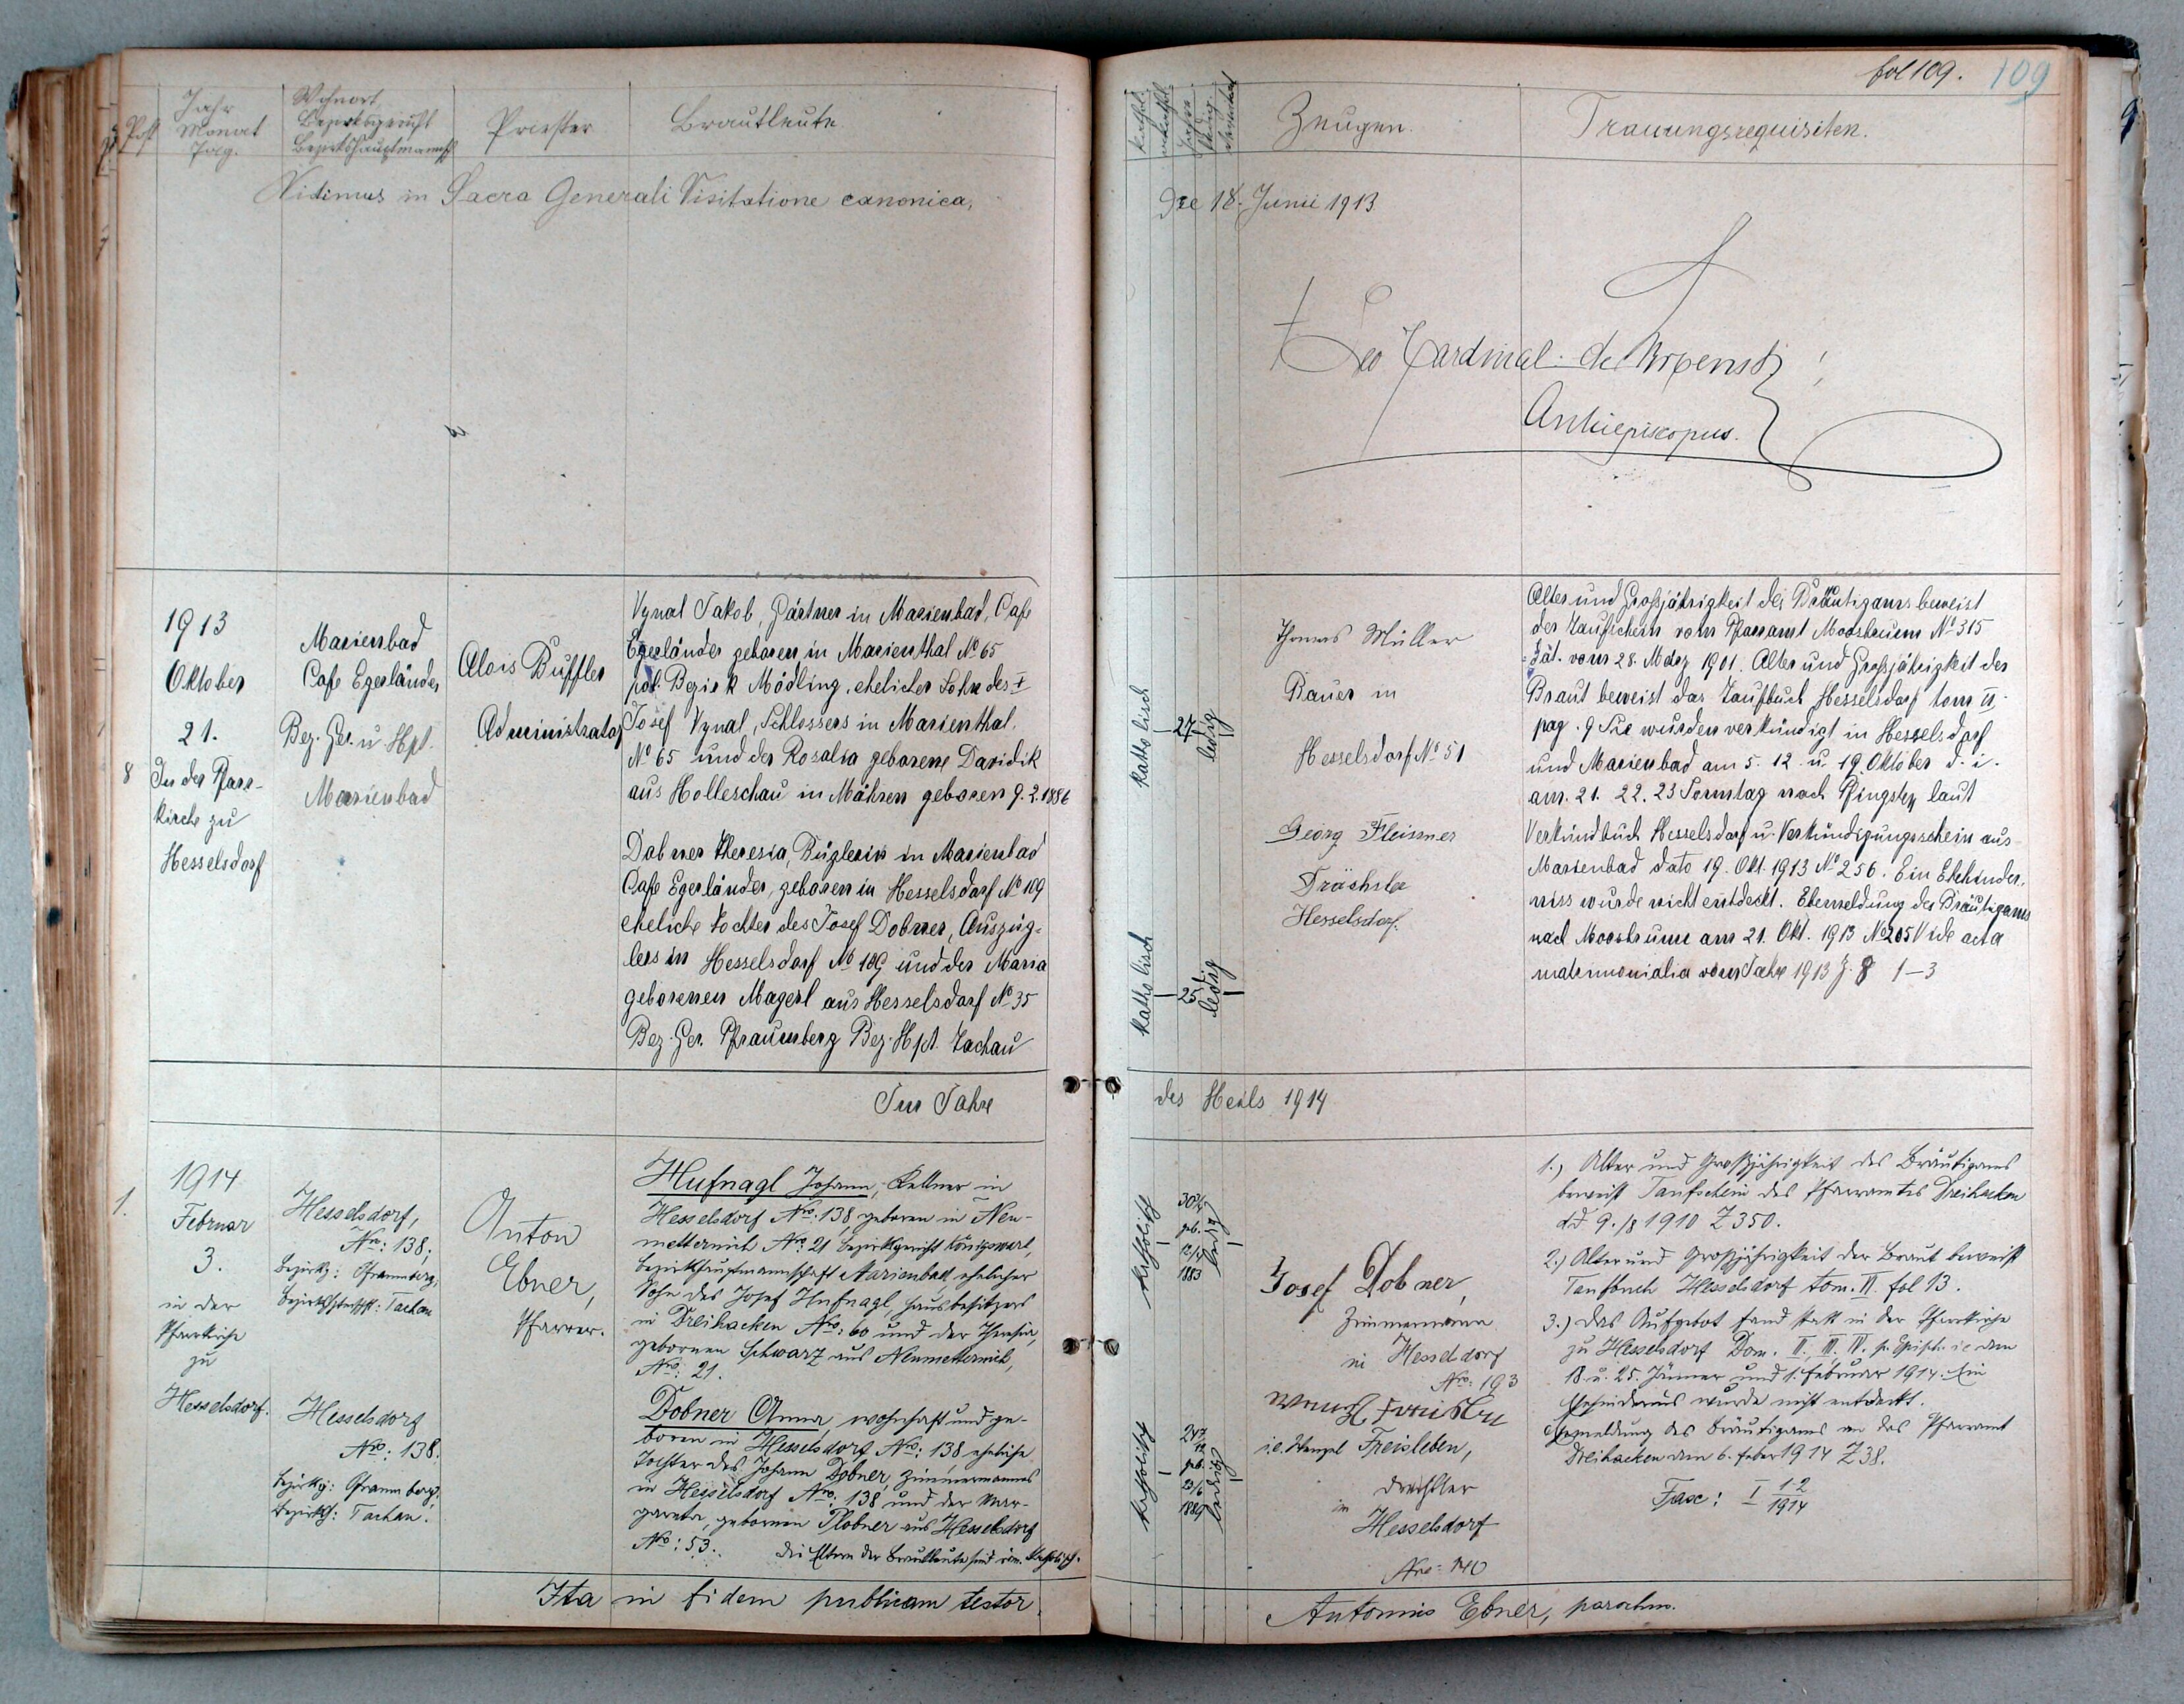 fol 109. 109
Post
Jahr
Monat
Tag.
Wohnort
Bezirksgericht
Bezirkshauptmannsch
Priester
Brautleute
Zeugen.
Trauungsrequisiten.
Vidimus in Sacra Generali Visitatione canonica,
die 18. Junii 1913
† Leo Cardinal de Skrbensky
Archiepiscopus.
8
1913
Oktober
21.
In der Pfarr-
kirche zu
Hesselsdorf
Marienbad
Cafe Egerländer
Bez. Ger. u Hpt.
Marienbad
Alois Büffler
Administrator
Vynal Jakob, Gärtner in Marienbad, Cafe
Egerländer geboren in Marienthal No 65
pol. Bezirk Mödling, ehelicher Sohn des
Josef Vynal, Schlossers in Marienthal
No 65 und der Rosalia geborene Davidik
aus Holleschau in Mähren geboren 9. 2. 1886
Dobner Theresia, Büglerin in Marienbad
Cafe Egerländer, geboren in Hesselsdorf No 109
eheliche Tochter des Josef Dobner, Auszüg-
lers in Hesselsdorf No 109 und der Maria
geborenen Magerl aus Hesselsdorf No 35
Bez. Ger. Pfraumberg Bez. Hpt. Tachau
katholisch
27
ledig
katholisch
25
ledig
Thomas Müller
Bauer in
Hesselsdorf No 51
Georg Fleissner
Hesselsdorf.
Alter und Großjährigkeit des Bräutigams beweist
der Taufschein vom Pfarramt Moosbrunn No 315
dat. vom 28. März 1901. Alter und Großjährigkeit der
Braut beweist das Taufbuch Hesselsdorf tom VI.
pag. 9 Sie wurden verkündigt in Hesselsdorf
und Marienbad am 5. 12. u. 19. Oktober d. i.
am. 21. 22. 23 Sonntag nach Pfingsten laut
Verkündbuch Hesselsdorf u. Verkündigungsschein aus
Marienbad dato 19. Okt. 1913 No 256. Ein Ehehinder-
niss wurde nicht entdeckt. Ehemeldung des Bräutigams
nach Moosbrunn am 21. Okt. 1913 No 205 Vide acta
matrimonialia vom Jahre 1913 J. 8 1-3
Im Jahre des Heils 1914
1.
1914
Februar
3.
in der
Pfarrkirche
zu
Hesselsdorf.
Hesselsdorf,
Nro: 138;
Bezirksg: Pfraumberg,
Bezirkshptschft: Tachau
Hesselsdorf
Nro: 138.
Bezirksg: Pfraumberg.
Bezirksh: Tachau.
Anton
Ebner,
Pfarrer.
Hufnagl Johann, Kellner in
Hesselsdorf Nro. 138, geboren in Neu-
metternich Nro 21 Bezirksgericht Königswart,
Bezirkshauptmannschaft Marienbad, ehelicher
Sohn des Josef Hufnagl, Hausbesitzers
in Dreihacken Nro: 60 und der Theresia,
gebornen Schwarz aus Neumetternich,
Nro: 21.
Dobner Anna, wohnhaft und ge-
boren in Hesselsdorf Nro: 138 eheliche
Tochter des Johann Dobner, Zimmermannes
in Hesselsdorf Nro. 138 und der Mar-
gareta, gebornen Plobner aus Hesselsdorf
Nro: 53. Die Eltern der Brautleute sind röm. katholisch.
katholisch
geb.
1883
ledig
katholisch
geb.
1889
ledig
Josef Dobner,
Zimmermann
in Hesselsdorf
Nro: 193
i. e. Wenzel Freisleben,
Drechsler
in
Hesselsdorf
Nro = 140
1.) Alter und Großjährigkeit des Bräutigams
beweist Taufschein des Pfarramtes Dreihacken
dd 9./8 1910 Z 350.
2.) Alter und Großjährigkeit der Braut beweist
Taufbuch Hesselsdorf tom. VI. fol 13.
3.) Das Aufgebot fand statt in der Pfarrkirche
zu Hesselsdorf Dom. II. III. IV. p. Epiph. i. e. am
18. u. 25. Jänner und 1. Februar 1914. Ein
Ehehindernis wurde nicht entdeckt.
Ehemeldung des Bräutigams an das Pfarramt
Dreihacken am 6. Feber 1914 Z 38.
Fasc: I 1-2
1914
Ita in fidem publicam testor.
Antonius Ebner, parochus.